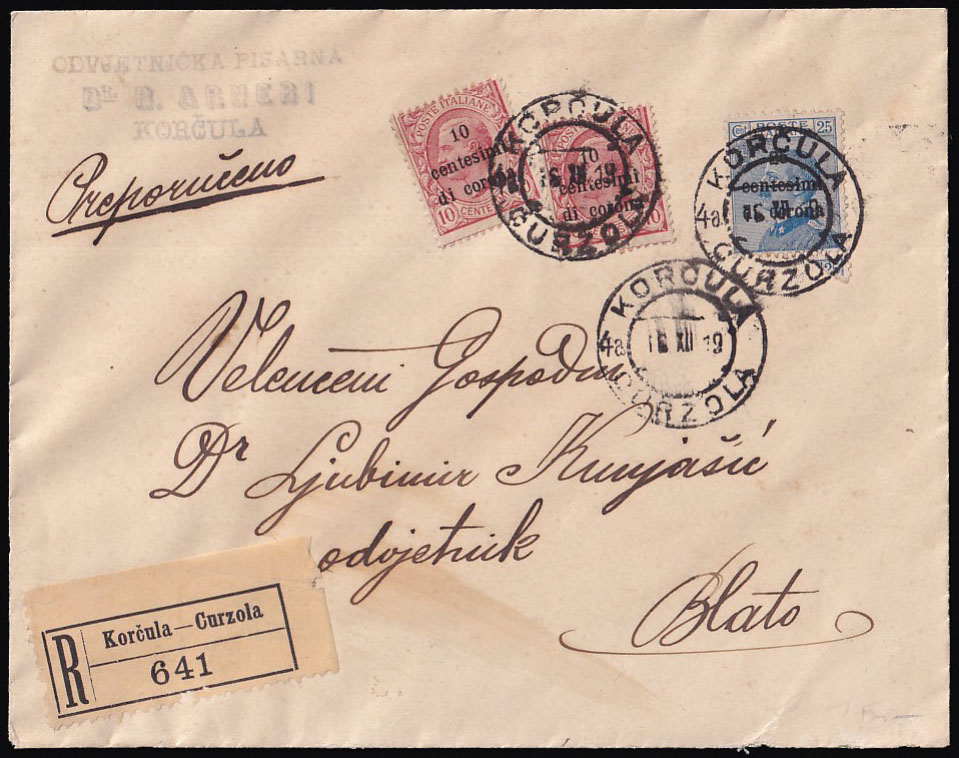 ODVJETNIČKA PISARNA
DR. R. ARNERI
KORČULA
Preporučeno
POSTE ITALIANE
10
centesimi
di corona
10 CENTES
10
centesimi
di corona
10
KORČULA
16 XII 19
CURZOLA
25
centesimi
di corona
KORČULA
4a 16 XII 19
CURZOLA
KORČULA
4a 16 XII 19
CURZOLA
Velenceni Gospodin
Dr Ljubimir Kunjašić
odvjetnik
Blato
R
Korčula—Curzola
641